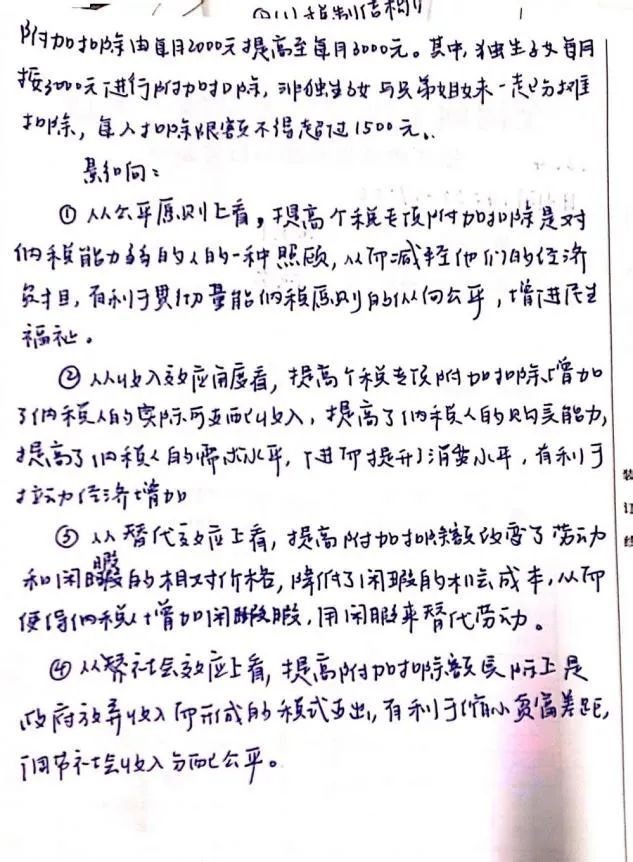 ②(1)税制结构
附加扣除由每月2000元提高至每月3000元。其中,独生子女每月
按3000元进行附加扣除,非独生子女与兄弟姐妹一起分摊
扣除,每人扣除限额不得超过1500元。
影响:
①从公平原则上看,提高个税专项附加扣除是对
纳税能力弱的人的一种照顾,从而减轻他们的经济
负担,有利于贯彻量能纳税原则的纵向公平,增进民生
福祉。
②从收入效应角度看,提高个税专项附加扣除,增加
了纳税人的实际可支配收入,提高了纳税人的购买能力,
提高了纳税人的需求水平,进而提升了消费水平,有利于
拉动经济增加
③从替代效应上看,提高附加扣除额改变了劳动
和闲暇的相对价格,降低了闲暇的机会成本,从而
使得纳税人增加闲暇,用闲暇来替代劳动。
④从社会效应上看,提高附加扣除额实际上是
政府放弃收入而形成的税式支出,有利于缩小贫富差距,
调节社会收入分配公平。
装
订
线